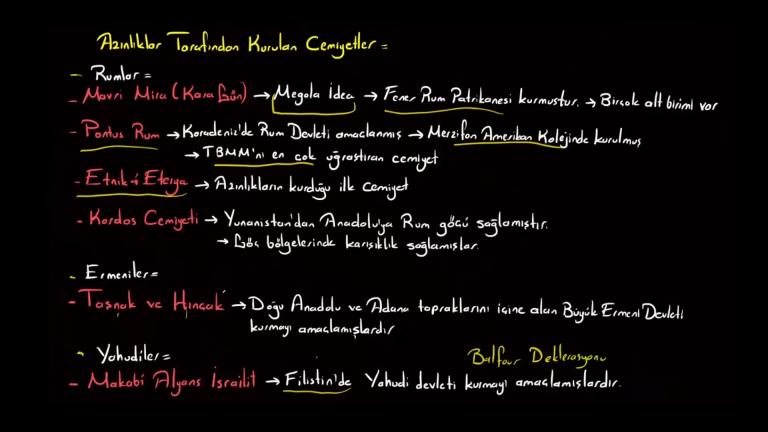 Azınlıklar Tarafından Kurulan Cemiyetler =
- Rumlar =
- Mavri Mira (Kara Gün) → Megola İdea → Fener Rum Patrikanesi kurmuştur. → Birçok alt birimi var
- Pontus Rum → Karadeniz'de Rum Devleti amaçlanmış → Merzifon Amerikan Kolejinde kurulmuş
→ TBMM'ni en çok uğraştıran cemiyet
- Etnik-i Eterya → Azınlıkların kurduğu ilk cemiyet
- Kordos Cemiyeti → Yunanistan'dan Anadolu'ya Rum göçü sağlamıştır.
→ Göç bölgelerinde karışıklık sağlamışlar.
- Ermeniler =
- Taşnak ve Hınçak → Doğu Anadolu ve Adana topraklarını içine alan Büyük Ermeni Devleti
kurmayı amaçlamışlardır
- Yahudiler =
Balfour Deklerasyonu
- Makabi Alyans İsrailit → Filistin'de Yahudi devleti kurmayı amaçlamışlardır.